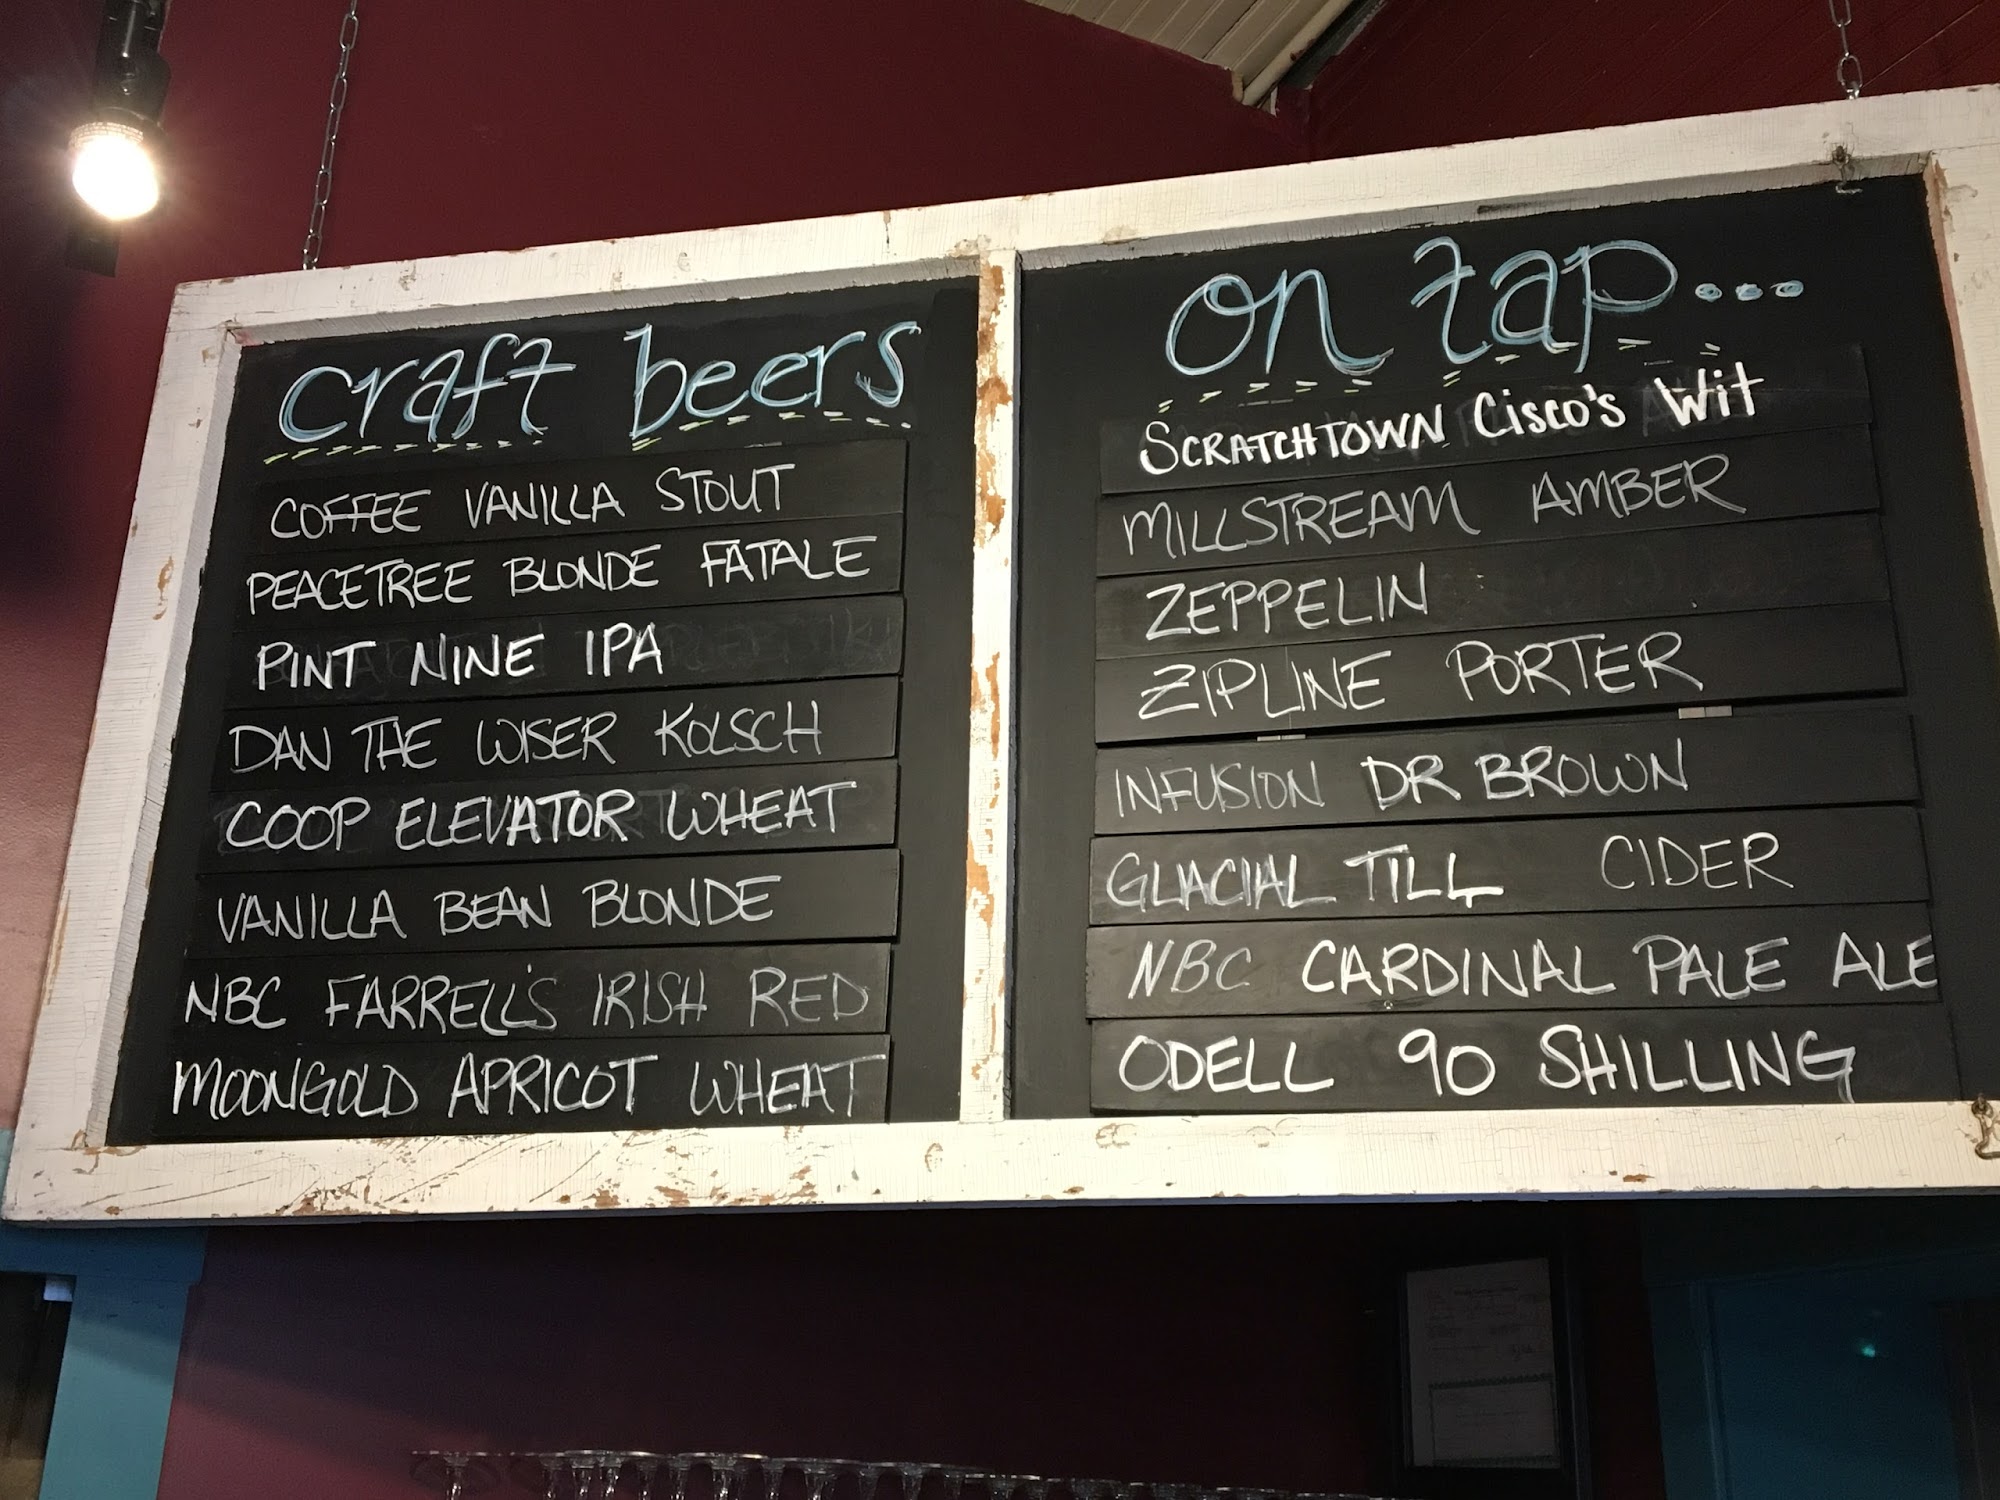 craft beers
COFFEE VANILLA STOUT
PEACETREE BLONDE FATALE
PINT NINE IPA
DAN THE WISER KOLSCH
COOP ELEVATOR WHEAT
VANILLA BEAN BLONDE
NBC FARRELL'S IRISH RED
MOONGOLD APRICOT WHEAT
on tap...
SCRATCHTOWN CISCO'S Wit
MILLSTREAM AMBER
ZEPPELIN
ZIPLINE PORTER
INFUSION DR BROWN
GLACIAL TILL CIDER
NBC CARDINAL PALE ALE
ODELL 90 SHILLING